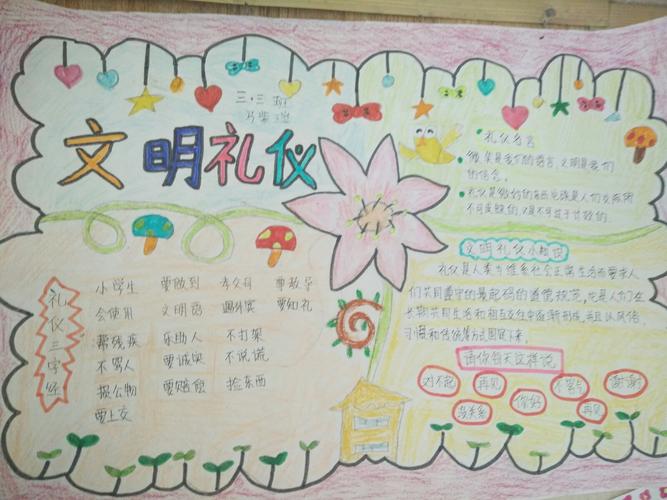 三.三班
文明礼仪
礼仪名言
微笑是我们的语言,文明是我们
的信念。
文明礼仪小知识
礼仪是人类为维系社会正常生活而要求人
们共同遵守的最起码的道德规范,它是人们在
长期共同生活和相互交往中逐渐形成,并且以风俗、
习惯和传统等方式固定下来。
请你每天这样说
对不起 再见 不客气 谢谢
没关系 你好 再见
礼仪三字经
小学生 要做到 孝父母 要教导
会使用 文明语 遇外宾 要知礼
帮残疾 乐助人 不打架
不骂人 要诚实 不说谎
损公物 要赔偿 捡东西
要上交